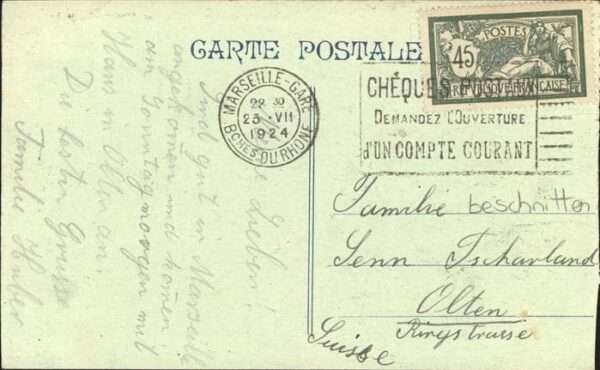 CARTE POSTALE
45
POSTES
REPUBLIQUE FRANÇAISE
MARSEILLE-GARE
22 30
23 · VII
1924
BCHES DU RHONE
CHÉQUES POSTAUX
DEMANDEZ L'OUVERTURE
D'UN COMPTE COURANT
Lieben!
Sind gut in Marseille
angekomen und komen
am Sonntag morgen mit
Hans in Olten an.
Die besten Grüsse
Familie Huber
Familie beschnitten
Senn Tscharland
Olten
Ringstrasse
Suisse